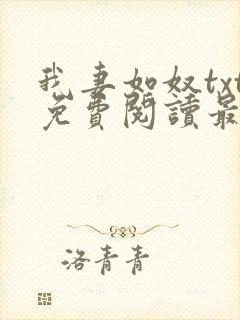 我妻如奴txt
免費閱讀最
洛青青